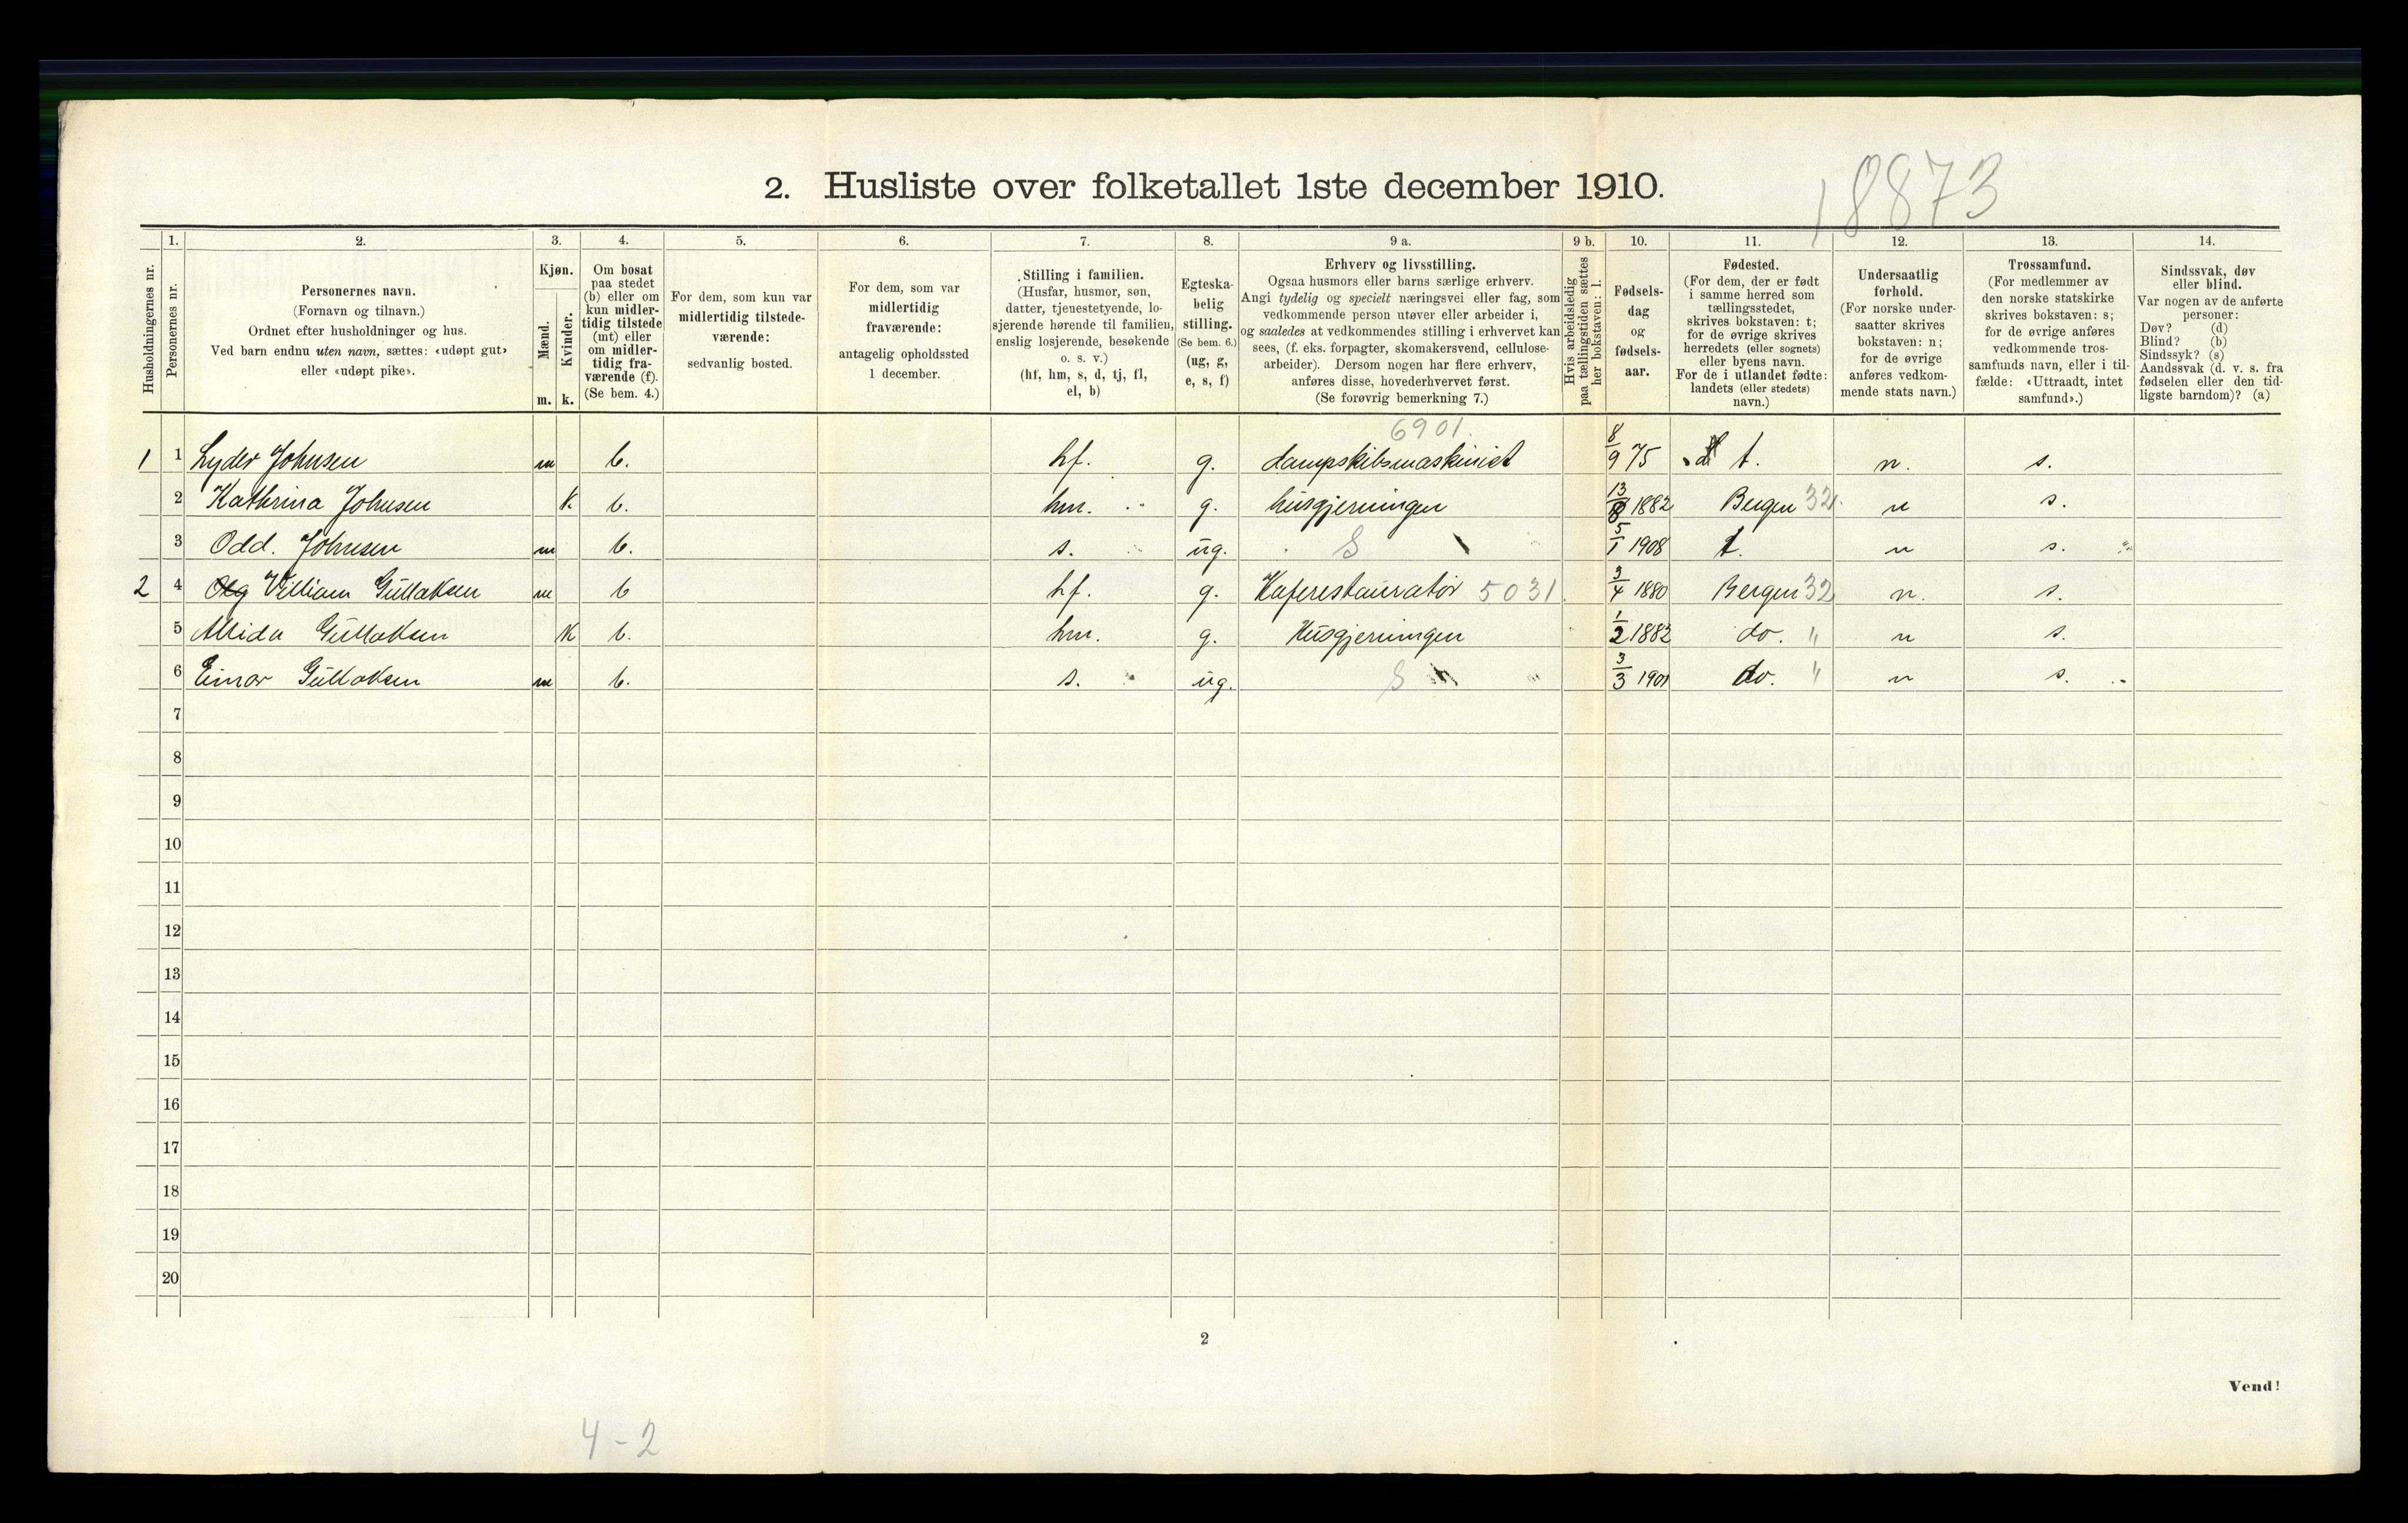 2. Husliste over folketallet 1ste december 1910.
18873
1. 2. 3. 4. 5. 6. 7. 8. 9 a. 9 b. 10. 11. 12. 13. 14.
Husholdningernes nr.
Personernes nr.
Personernes navn.
(Fornavn og tilnavn.)
Ordnet efter husholdninger og hus.
Ved barn endnu uten navn, sættes: «udøpt gut»
eller «udøpt pike».
Kjøn.
Mænd.
Kvinder.
m. k.
Om bosat
paa stedet
(b) eller om
kun midler-
tidig tilstede
(mt) eller
om midler-
tidig fra-
værende (f).
(Se bem. 4.)
For dem, som kun var
midlertidig tilstede-
værende:
sedvanlig bosted.
For dem, som var
midlertidig
fraværende:
antagelig opholdssted
1 december.
Stilling i familien.
(Husfar, husmor, søn,
datter, tjenestetyende, lo-
sjerende hørende til familien,
enslig losjerende, besøkende
o. s. v.)
(hf, hm, s, d, tj, fl,
el, b)
Egteska-
belig
stilling.
(Se bem. 6.)
(ug, g,
e, s, f)
Erhverv og livsstilling.
Ogsaa husmors eller barns særlige erhverv.
Angi tydelig og specielt næringsvei eller fag, som
vedkommende person utøver eller arbeider i,
og saaledes at vedkommendes stilling i erhvervet kan
sees, (f. eks. forpagter, skomakersvend, cellulose-
arbeider). Dersom nogen har flere erhverv,
anføres disse, hovederhvervet først.
(Se forøvrig bemerkning 7.)
Hvis arbeidsledig
paa tællingstiden sættes
her bokstaven: l.
Fødsels-
dag
og
fødsels-
aar.
Fødested.
(For dem, der er født
i samme herred som
tællingsstedet,
skrives bokstaven: t;
for de øvrige skrives
herredets (eller sognets)
eller byens navn.
For de i utlandet fødte:
landets (eller stedets)
navn.)
Undersaatlig
forhold.
(For norske under-
saatter skrives
bokstaven: n;
for de øvrige
anføres vedkom-
mende stats navn.)
Trossamfund.
(For medlemmer av
den norske statskirke
skrives bokstaven: s;
for de øvrige anføres
vedkommende tros-
samfunds navn, eller i til-
fælde: «Uttraadt, intet
samfund».)
Sindssvak, døv
eller blind.
Var nogen av de anførte
personer:
Døv? (d)
Blind? (b)
Sindssyk? (s)
Aandssvak (d. v. s. fra
fødselen eller den tid-
ligste barndom)? (a)
6901.
1 1 Lyder Johnsen m b. hf. g. dampskibsmaskinist 8/9 75 t. n. s.
2 Kathrina Johnsen k b. hm. g. husgjerningen 13/8 1882 Bergen 32. n s.
3 Odd. Johnsen m b. s. ug. S 5/1 1908 t. n s.
2 4 Villiam Gullaksen m b hf. g. Kaferestauratør 5031. 3/4 1880 Bergen 32 n. s.
5 Allida Gullaksen k b. hm. g. Husgjerningen 1/2 1882 do. " n s.
6 Einar Gullaksen m b. s. ug. S 3/3 1901 do. " n s.
7
8
9
10
11
12
13
14
15
16
17
18
19
20
2
Vend!
4-2